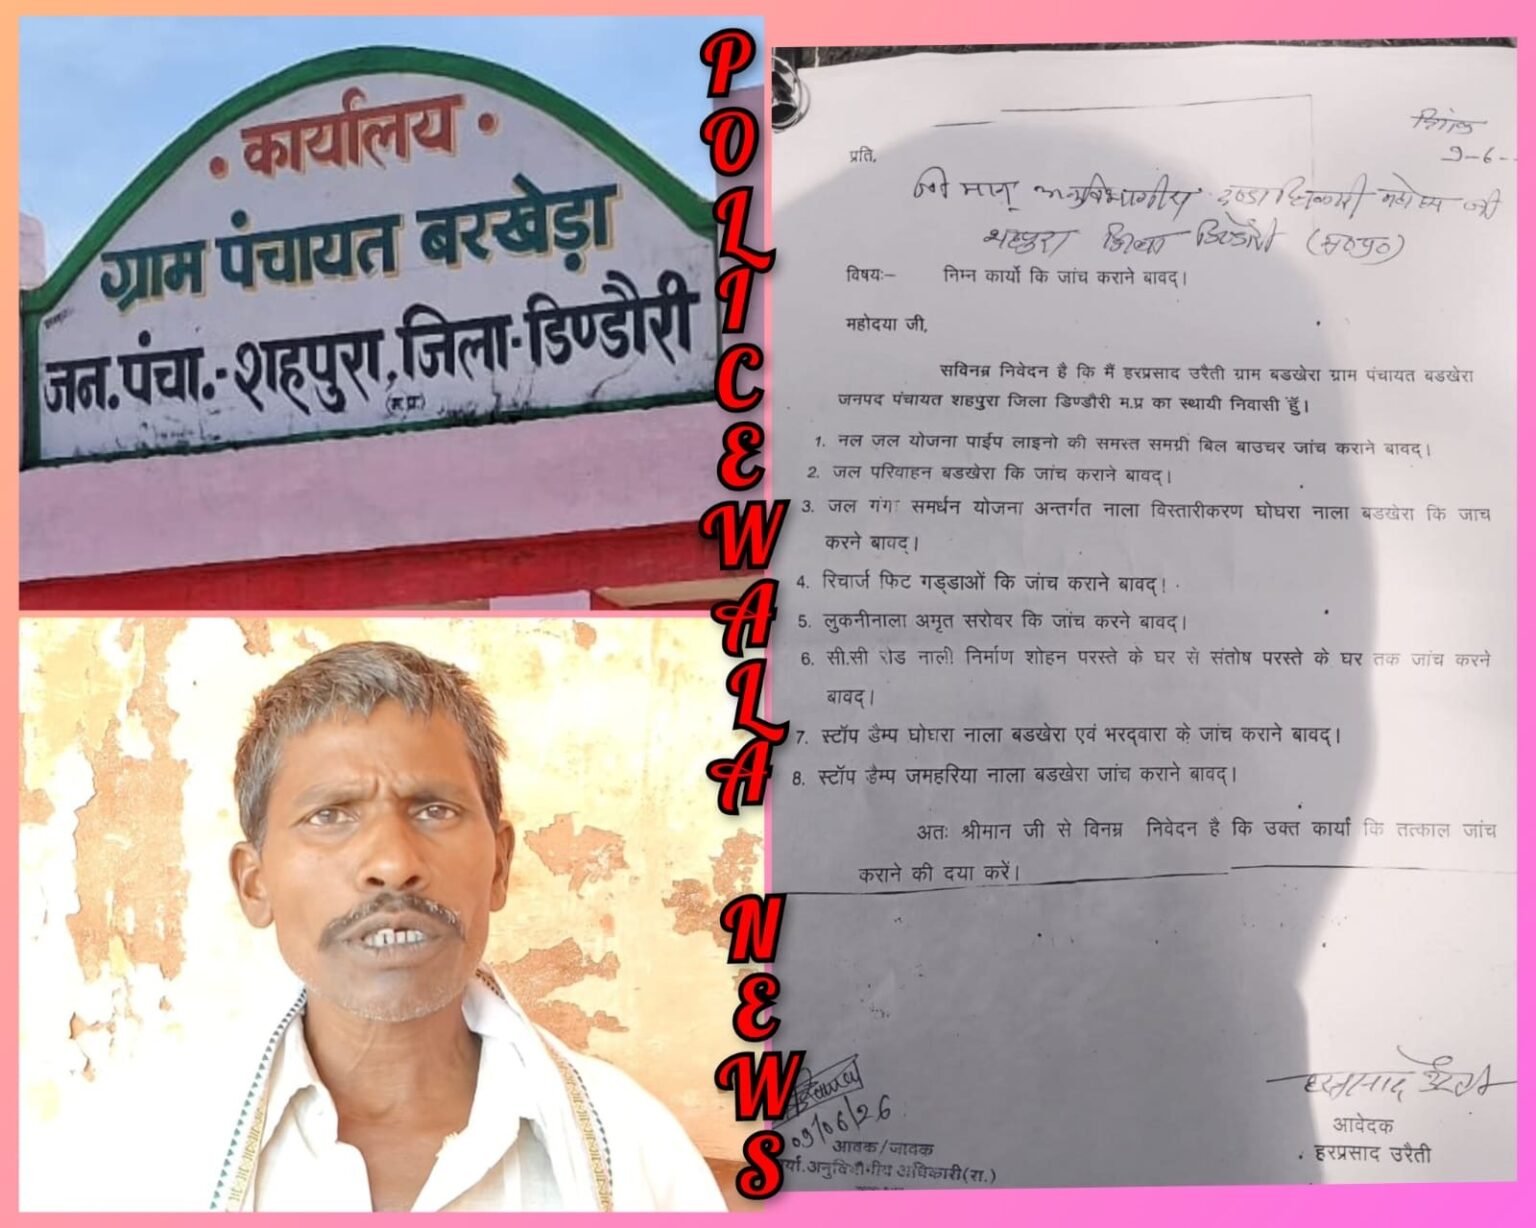 • कार्यालय •
ग्राम पंचायत बरखेड़ा
जन. पंचा.- शहपुरा, जिला- डिण्डौरी
(म.प्र.)
POLICEWALA NEWS
दिनांक
9-6-
प्रति,
श्री मान् अनुविभागीय दण्डाधिकारी महोदय जी
शहपुरा जिला डिण्डौरी (म०प्र०)
विषयः– निम्न कार्यो कि जांच कराने बावद्।
महोदया जी,
सविनम्र निवेदन है कि मैं हरप्रसाद उरैती ग्राम बडखेरा ग्राम पंचायत बडखेरा
जनपद पंचायत शहपुरा जिला डिण्डौरी म.प्र का स्थायी निवासी हुँ।
1. नल जल योजना पाईप लाइनो की समस्त समग्री बिल बाउचर जांच कराने बावद्।
2. जल परिवाहन बडखेरा कि जांच कराने बावद्।
3. जल गंगा समर्धन योजना अन्तर्गत नाला विस्तारीकरण घोघरा नाला बडखेरा कि जाच
करने बावद्।
4. रिचार्ज फिट गड्डाओं कि जांच कराने बावद्!
5. लुकनीनाला अमृत सरोवर कि जांच करने बावद्।
6. सी.सी रोड नाली निर्माण शोहन परस्ते के घर से संतोष परस्ते के घर तक जांच करने
बावद्।
7. स्टॉप डैम्प घोघरा नाला बडखेरा एवं भरद्वारा के जांच कराने बावद्।
8. स्टॉप डैम्प जमहरिया नाला बडखेरा जांच कराने बावद्।
अतः श्रीमान जी से विनम्र निवेदन है कि उक्त कार्यो कि तत्काल जांच
कराने की दया करें।
09/06/26
आवक/जावक
अनुविभागीय अधिकारी(रा.)
हरप्रसाद उरैती
आवेदक
हरप्रसाद उरैती